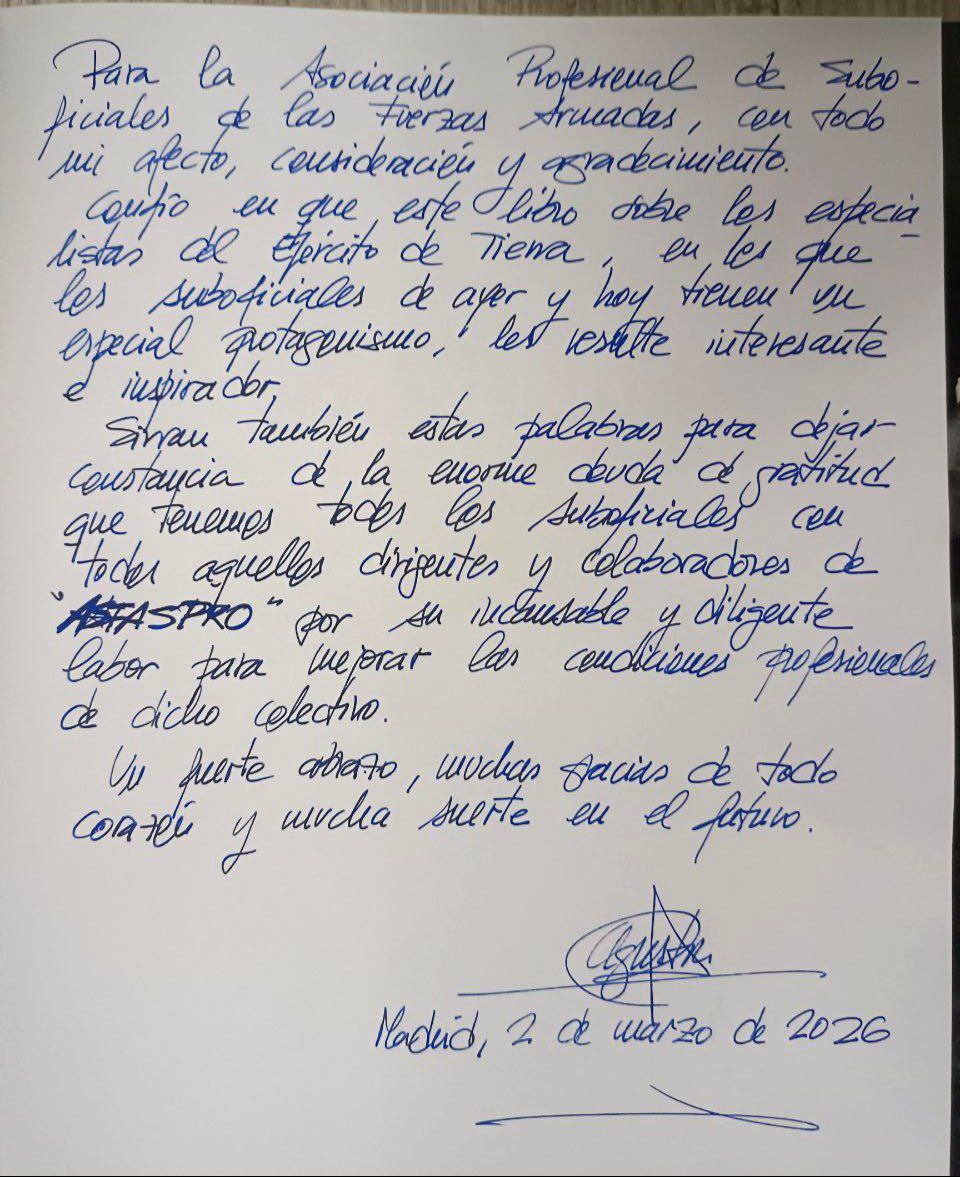 Para la Asociación Profesional de Subo-
ficiales de las Fuerzas Armadas, con todo
mi afecto, consideración y agradecimiento.
Confío en que este libro sobre los especia-
listas del Ejército de Tierra, en los que
los suboficiales de ayer y hoy tienen un
especial protagonismo, les resulte interesante
e inspirador.
Sirvan también estas palabras para dejar
constancia de la enorme deuda de gratitud
que tenemos todos los suboficiales con
todos aquellos dirigentes y colaboradores de
"ASFASPRO" por su incansable y diligente
labor para mejorar las condiciones profesionales
de dicho colectivo.
Un fuerte abrazo, muchas gracias de todo
corazón y mucha suerte en el futuro.
Madrid, 2 de marzo de 2026